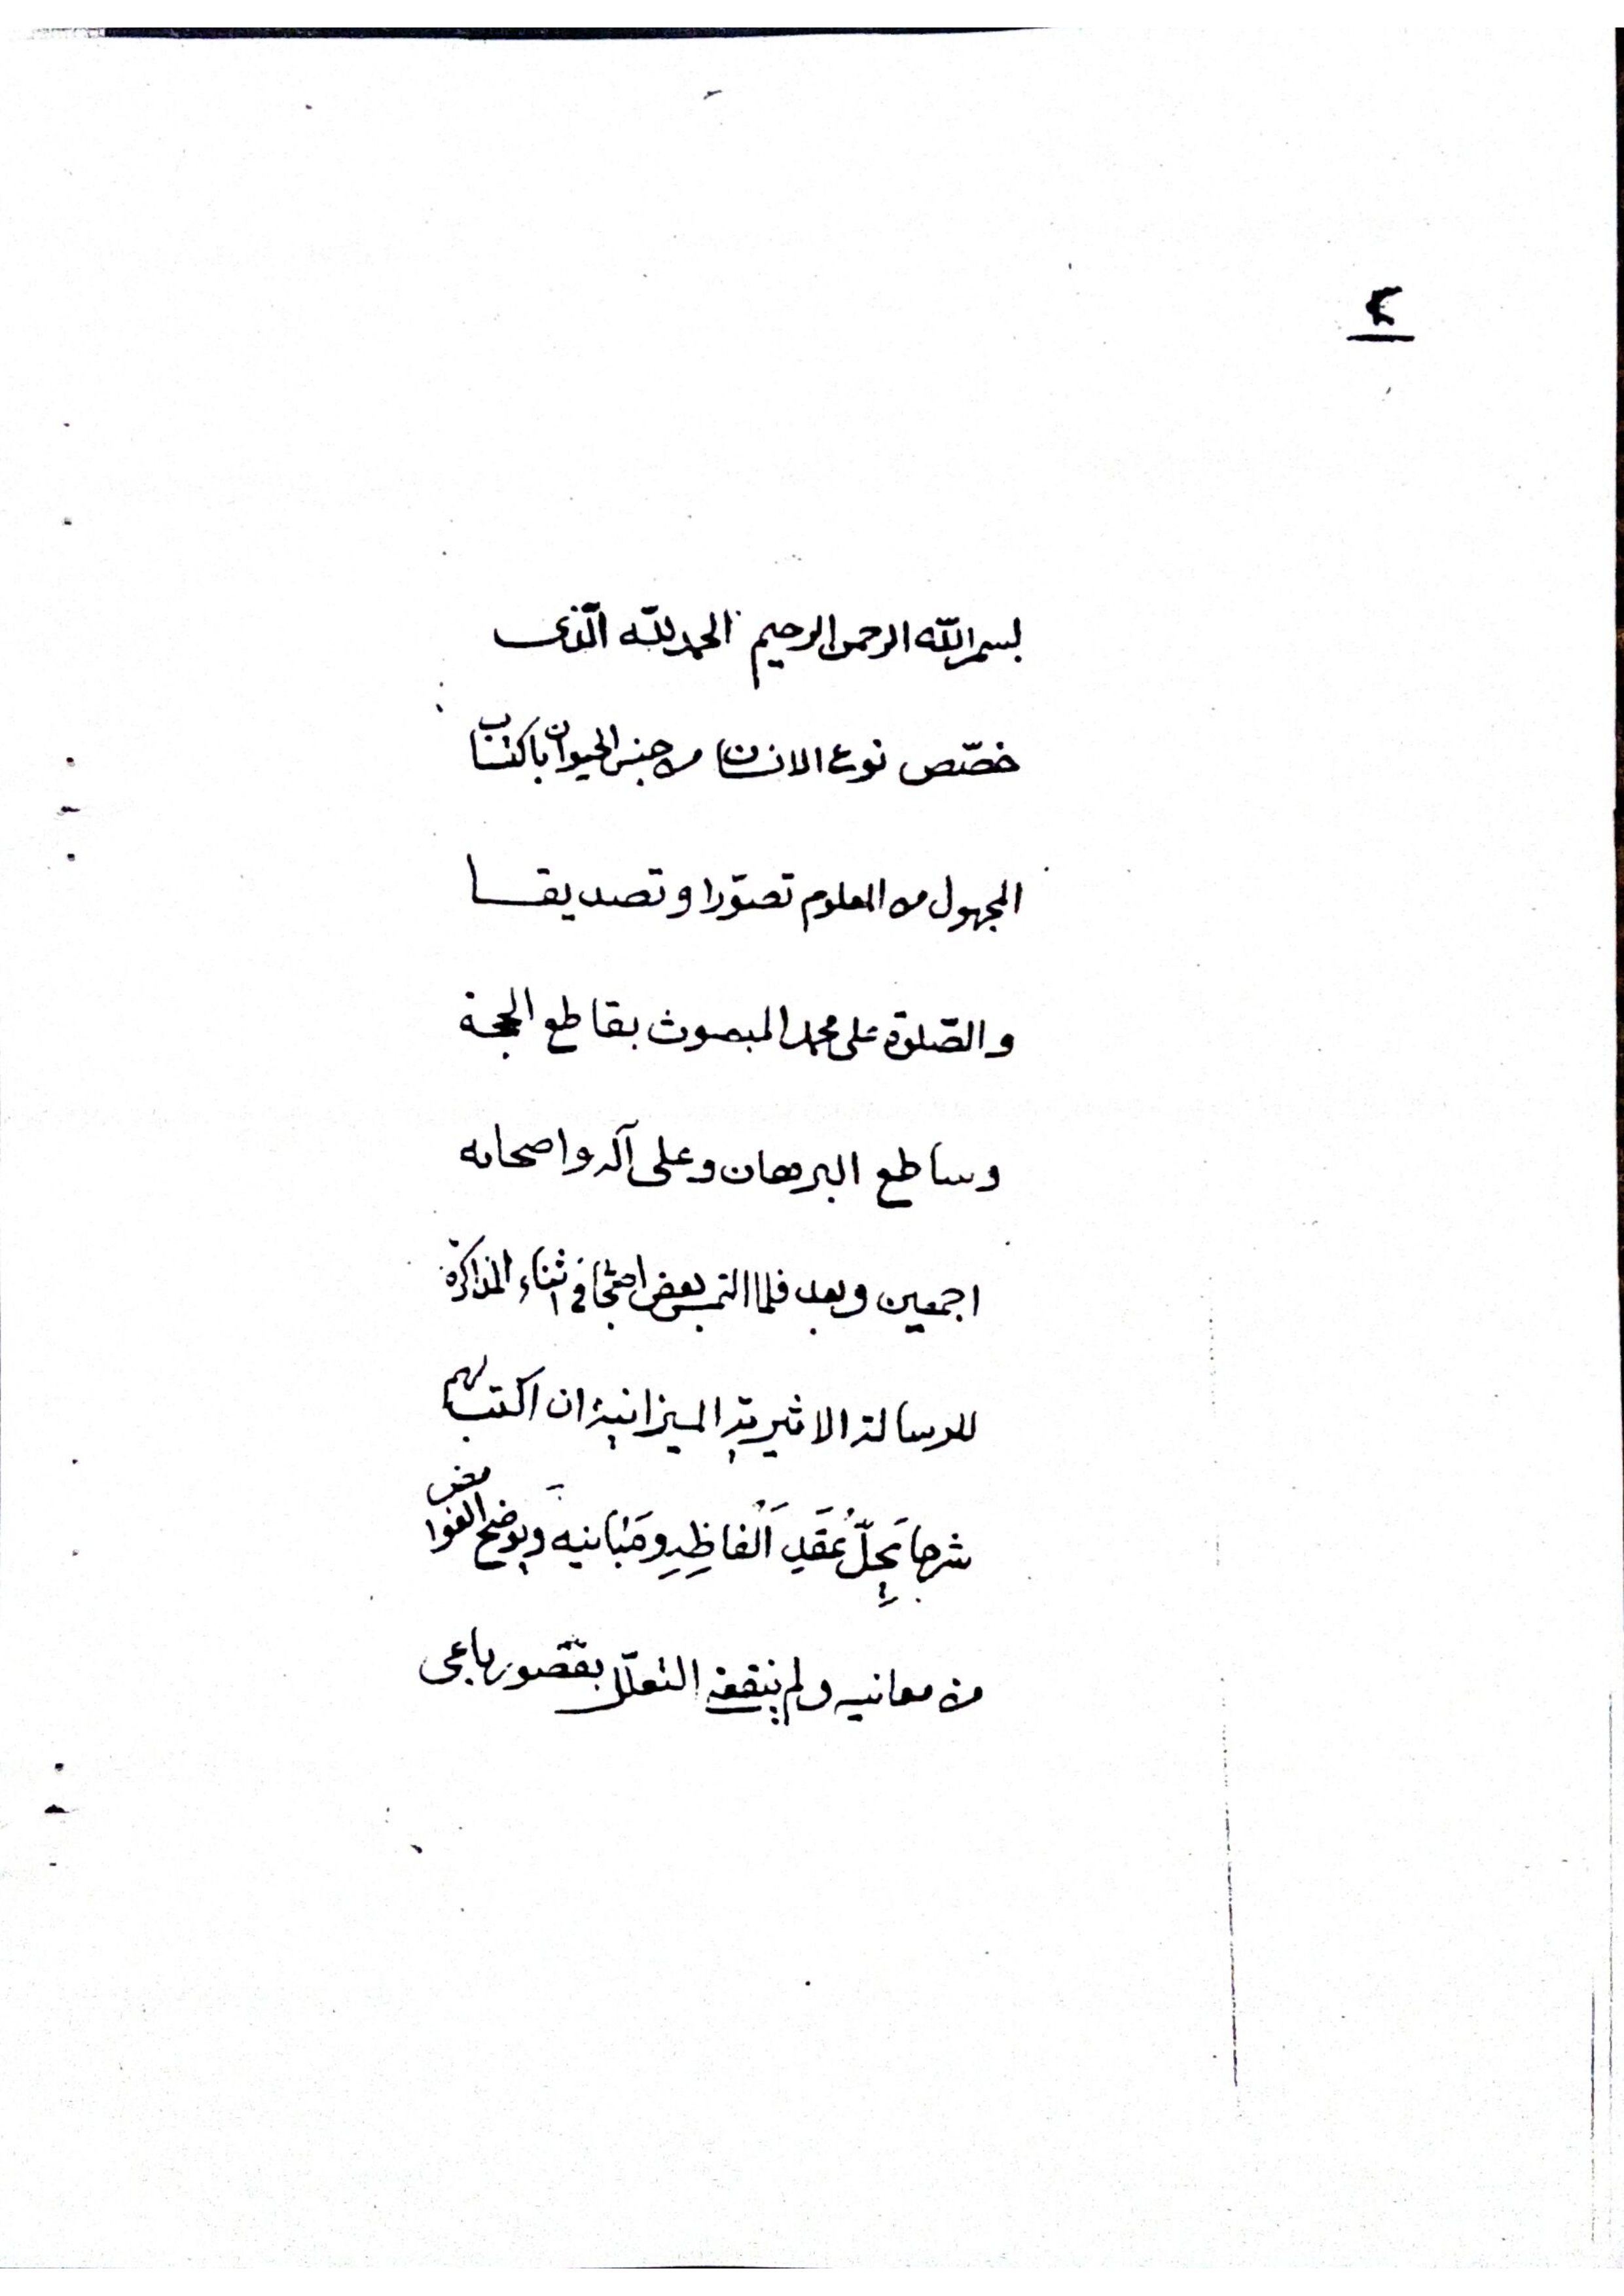 ٢
بسم الله الرحمن الرحيم الحمد لله الّذى
خصّص نوع الانسان من جنس الحيوان باكتساب
المجهول من المعلوم تصوّرا وتصديقا
والصّلوة على محمد المبعوث بقاطع الحجة
وساطع البرهان وعلى آله واصحابه
اجمعين وبعد فلما التمس بعض في اثناء المذاكرة
للرسالة الاثيرية الميزانية ان اكتب لهم
شرحا يَحِلّ عُقَدِ اَلْفاظِهِ ومَبَانيه ويوضح الغوامض
من معانيه ولم ينفعه التعلّل بقصور باعى